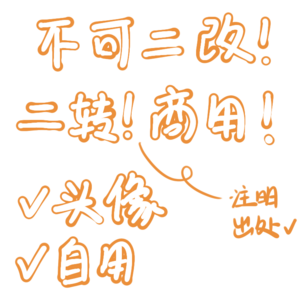 不可二改!
二转!商用!
注明
出处✓
✓头像
✓自用